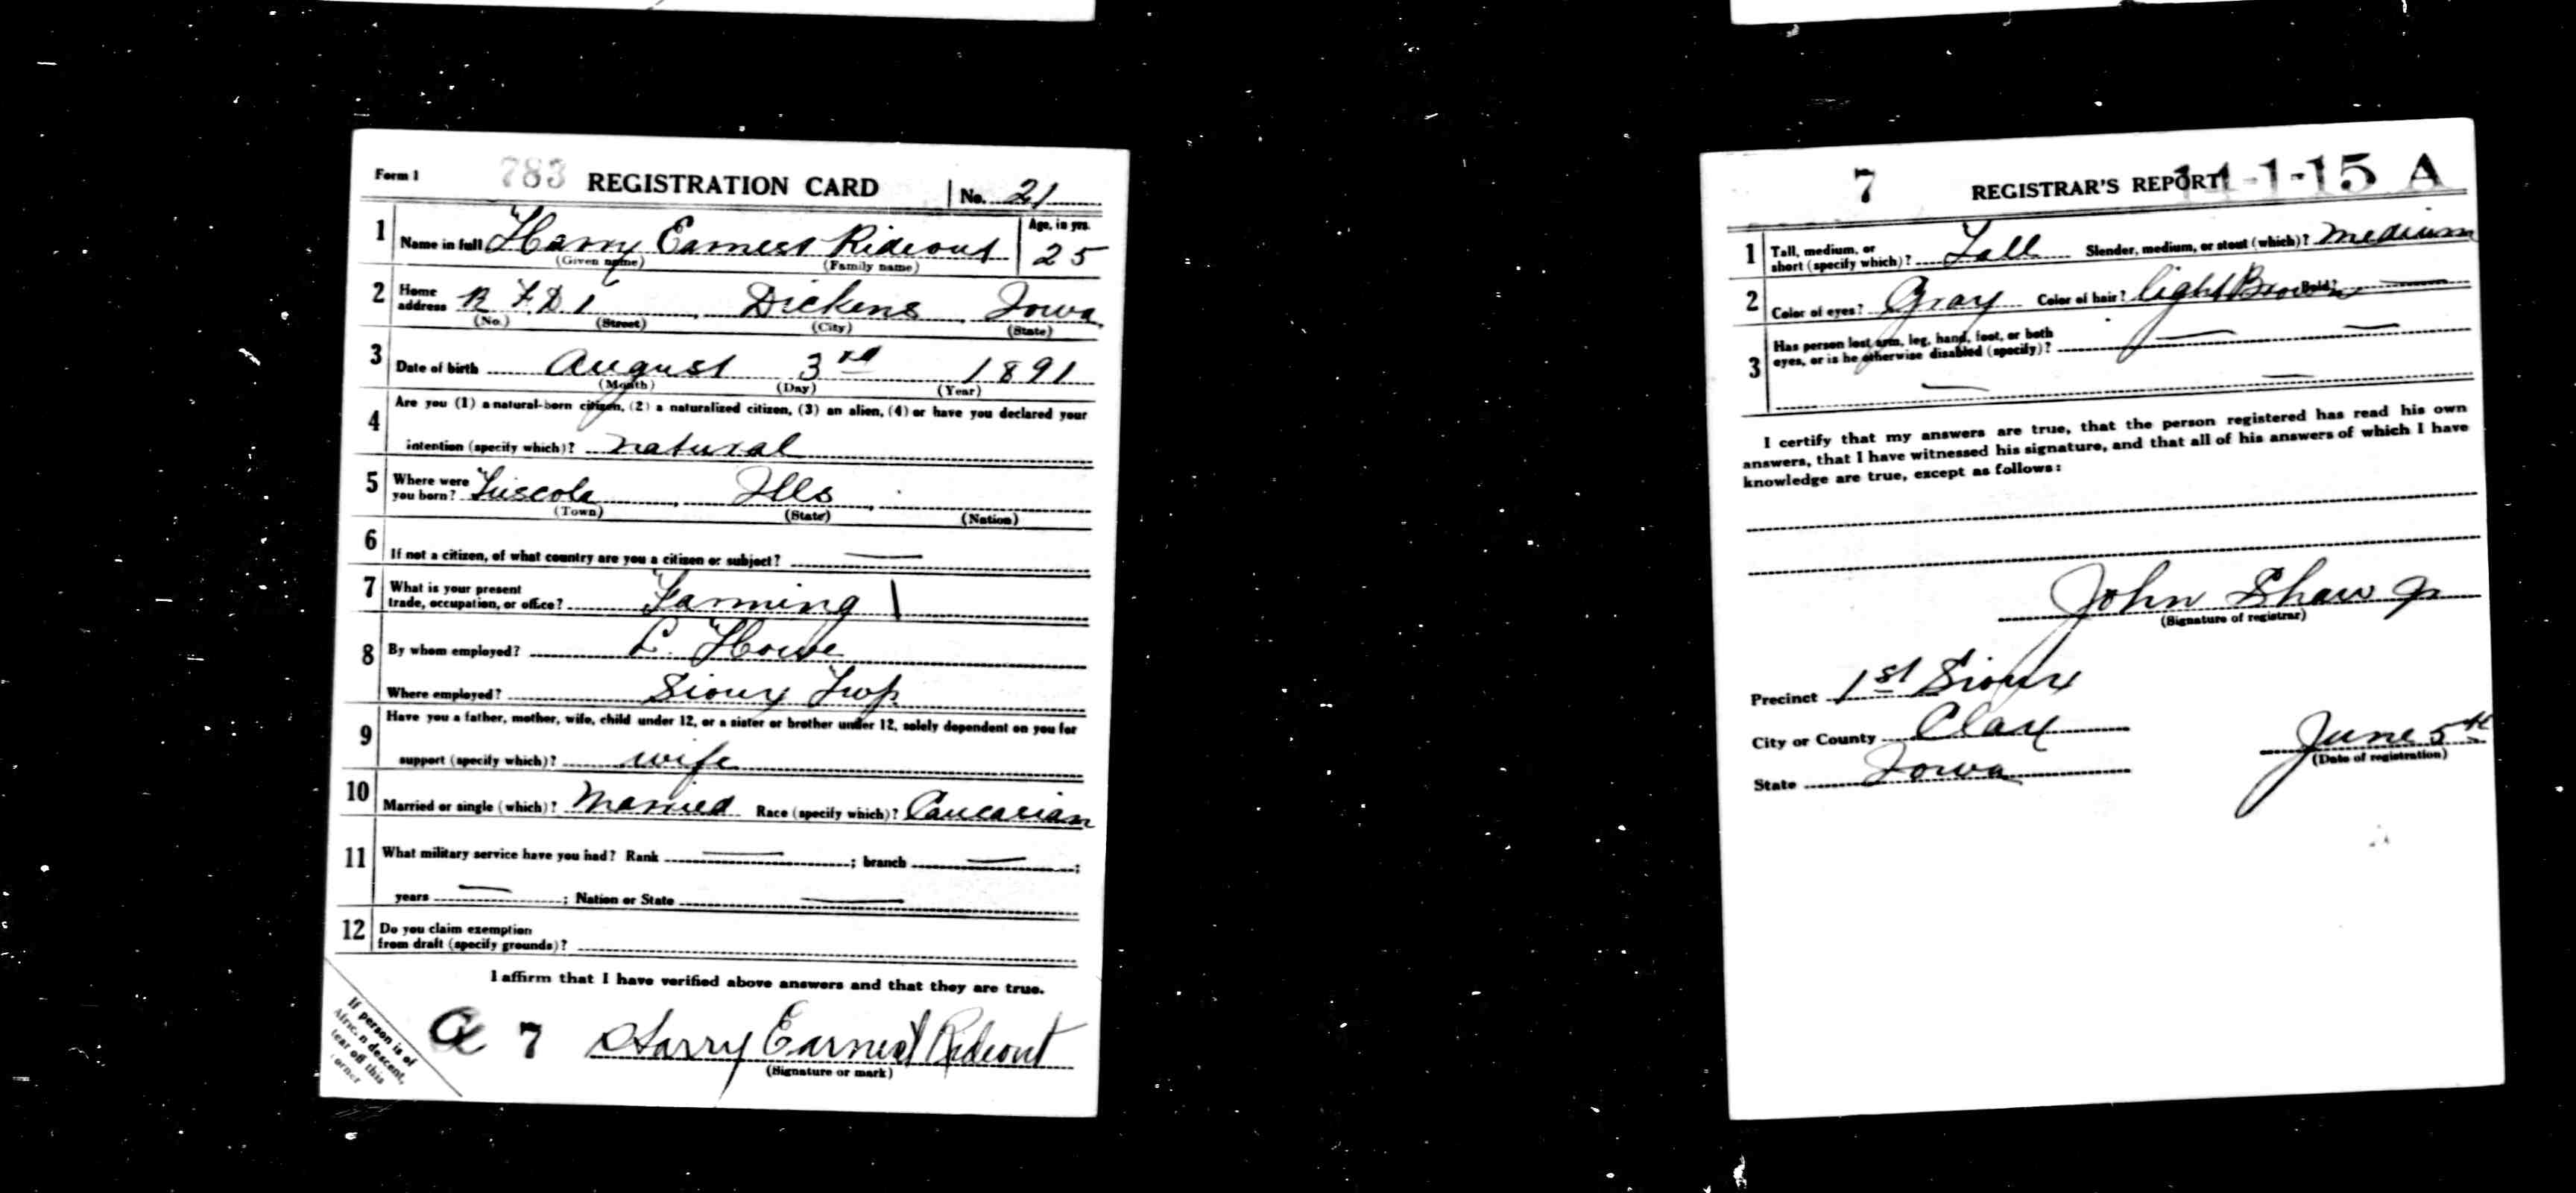 Form 1 783 REGISTRATION CARD No. 21
1 Name in full Harry Earnest Rideout Age, in yrs. 25
(Given name) (Family name)
2 Home address R F D 1 Dickens Iowa
(No.) (Street) (City) (State)
3 Date of birth August 3rd 1891
(Month) (Day) (Year)
4 Are you (1) a natural-born citizen, (2) a naturalized citizen, (3) an alien, (4) or have you declared your
intention (specify which)? natural
5 Where were you born? Tuscola, Ills,
(Town) (State) (Nation)
6 If not a citizen, of what country are you a citizen or subject? —
7 What is your present
trade, occupation, or office? Farming \
8 By whom employed? L. Howe
Where employed? Sioux Twp.
9 Have you a father, mother, wife, child under 12, or a sister or brother under 12, solely dependent on you for
support (specify which)? wife
10 Married or single (which)? Married Race (specify which)? Caucasian
11 What military service have you had? Rank — ; branch — ;
years — ; Nation or State —
12 Do you claim exemption
from draft (specify grounds)?
I affirm that I have verified above answers and that they are true.
7 Harry Earnest Rideout
(Signature or mark)
If person is of
African descent,
tear off this
corner
7 REGISTRAR'S REPORT 14-1-15 A
1 Tall, medium, or
short (specify which)? Tall Slender, medium, or stout (which)? Medium
2 Color of eyes? Gray Color of hair? light Brown Bald? —
3 Has person lost arm, leg, hand, foot, or both
eyes, or is he otherwise disabled (specify)? — —
— —
I certify that my answers are true, that the person registered has read his own
answers, that I have witnessed his signature, and that all of his answers of which I have
knowledge are true, except as follows:
John Shaw Jr
(Signature of registrar)
Precinct 1st Sioux
City or County Clay
State Iowa
June 5th
(Date of registration)